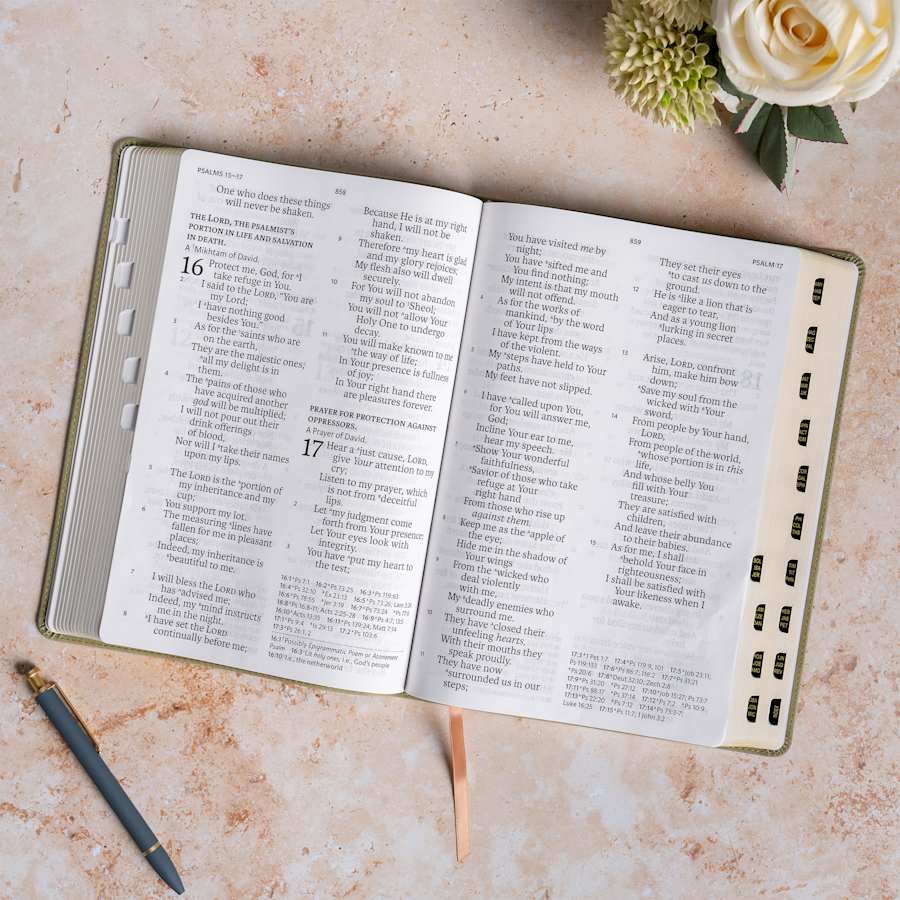 PSALMS 15–17
858
One who does these things
will never be shaken.
THE LORD, THE PSALMIST'S
PORTION IN LIFE AND SALVATION
IN DEATH.
A Mikhtam of David.
16 Protect me, God, for I
take refuge in You.
2 I said to the LORD, "You are
my Lord;
I have nothing good
besides You."
3 As for the saints who are
on the earth,
They are the majestic ones;
all my delight is in
them.
4 The pains of those who
have acquired another
god will be multiplied;
I will not pour out their
drink offerings
of blood,
Nor will I take their names
upon my lips.
5 The LORD is the portion of
my inheritance and my
cup;
You support my lot.
6 The measuring lines have
fallen for me in pleasant
places;
Indeed, my inheritance is
beautiful to me.
7 I will bless the LORD who
has advised me;
Indeed, my mind instructs
me in the night.
8 I have set the LORD
continually before me;
Because He is at my right
hand, I will not be
shaken.
9 Therefore my heart is glad
and my glory rejoices;
My flesh also will dwell
securely.
10 For You will not abandon
my soul to Sheol;
You will not allow Your
Holy One to undergo
decay.
11 You will make known to me
the way of life;
In Your presence is fullness
of joy;
In Your right hand there
are pleasures forever.
PRAYER FOR PROTECTION AGAINST
OPPRESSORS.
A Prayer of David.
17 Hear a just cause, LORD,
give Your attention to my
cry;
Listen to my prayer, which
is not from deceitful
lips.
2 Let my judgment come
forth from Your presence;
Let Your eyes look with
integrity.
3 You have put my heart to
the test;
16:1 Ps 7:1 16:2 Ps 73:25 16:3 Ps 119:63
16:10 Acts 13:35
16:3 Possibly Epigrammatic Poem or Atonement
Psalm 16:3 Lit holy ones; i.e., God's people
16:10 I.e., the netherworld
859
PSALM 17
You have visited me by
night;
You have sifted me and
You find nothing;
My intent is that my mouth
will not offend.
4 As for the works of
mankind, by the word
of Your lips
I have kept from the ways
of the violent.
5 My steps have held to Your
paths.
My feet have not slipped.
6 I have called upon You,
for You will answer me,
God;
Incline Your ear to me,
hear my speech.
7 Show Your wonderful
faithfulness,
Savior of those who take
refuge at Your
right hand
From those who rise up
against them.
8 Keep me as the apple of
the eye;
Hide me in the shadow of
Your wings
9 From the wicked who
deal violently
with me,
My deadly enemies who
surround me.
10 They have closed their
unfeeling hearts,
With their mouths they
speak proudly.
11 They have now
surrounded us in our
steps;
They set their eyes
to cast us down to the
ground.
12 He is like a lion that is
eager to tear,
And as a young lion
lurking in secret
places.
13 Arise, LORD, confront
him, make him bow
down;
Save my soul from the
wicked with Your
sword,
14 From people by Your hand,
LORD,
From people of the world,
whose portion is in this
life,
And whose belly You
fill with Your
treasure;
They are satisfied with
children,
And leave their abundance
to their babies.
15 As for me, I shall
behold Your face in
righteousness;
I shall be satisfied with
Your likeness when I
awake.
Luke 16:25 17:15 Ps 11:7; 1 John 3:2
INDEX